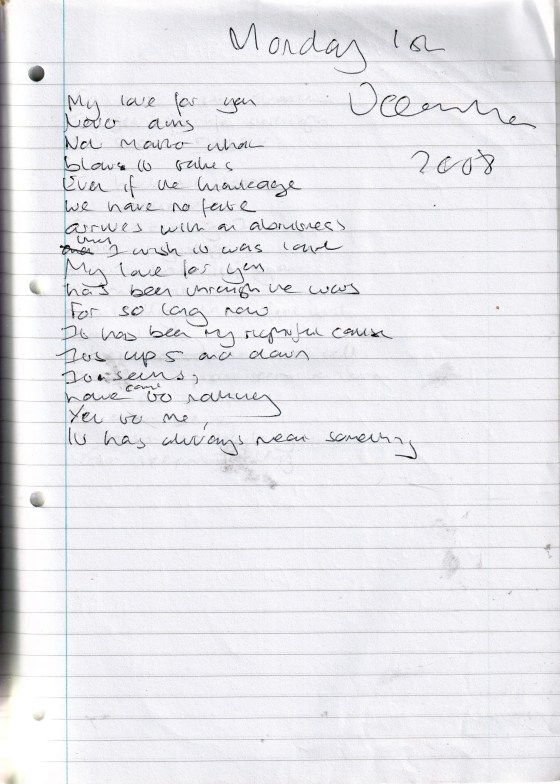 Monday 1st
December
2008
My love for you
Never dims
No matter what
blows it takes
Even if the message
we have no fate
arrives with an abruptness
they I wish it was love
My love for you
has been through the wars
For so long now
It has been my rightful cause
Its ups and down
It seems,
have came to nothing
Yet to me,
It has always mean something